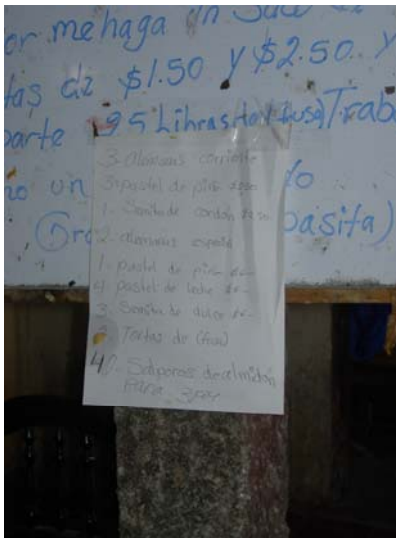 or me haga un Saco de
tas de $1.50 y $2.50. y
parte 95 Libras Trab
no un lo
Gra pasita)
3- alemanas corriente
3- pastel de piña $2.50
1- Semita de cordon $2.50
2- alemanas especial
1- pastel de piña $5-
4 pastel de leche $5-
3 Semita de dulce $5-
Tortas de (fran)
40- Salpores de almidón
Para